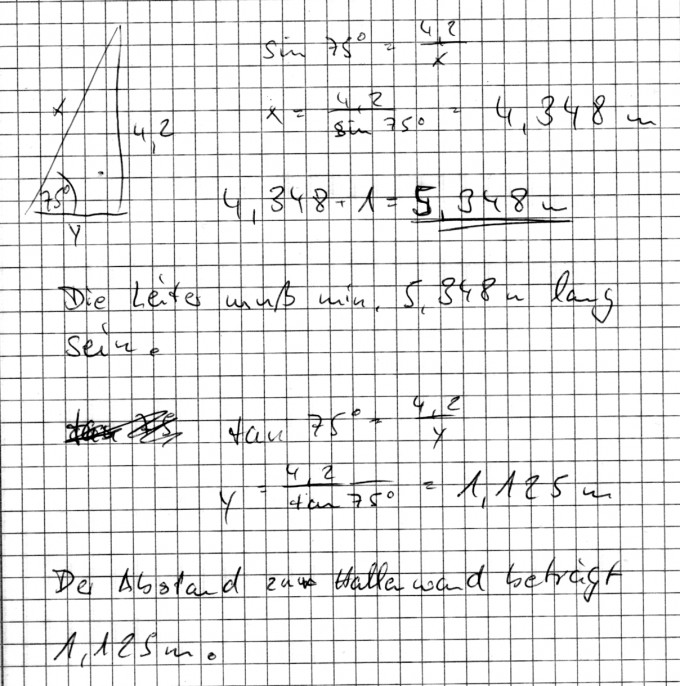 sin 75° = 4,2/x
x
4,2
x = 4,2/sin 75° = 4,348 m
75°
y
4,348 + 1 = 5,348 m
Die Leiter muß min. 5,348 m lang
sein.
tan 75° = 4,2/y
y = 4,2/tan 75° = 1,125 m
Der Abstand zur Hallenwand beträgt
1,125 m.